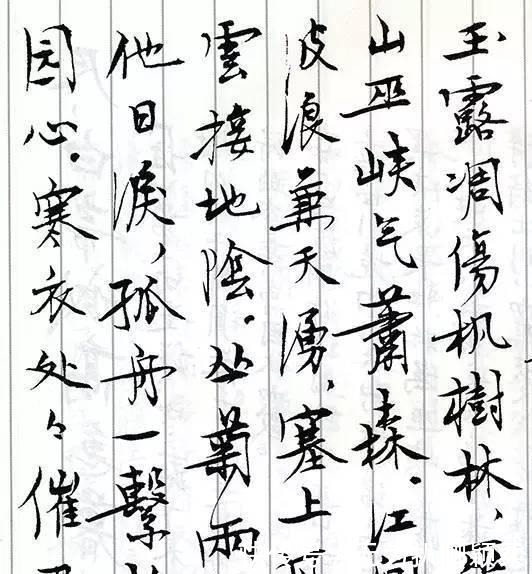 玉露凋傷枫樹林、
山巫峡气蕭森。江
波浪兼天湧，塞上
雲接地陰。丛菊兩
他日淚，孤舟一繫
园心。寒衣处々催